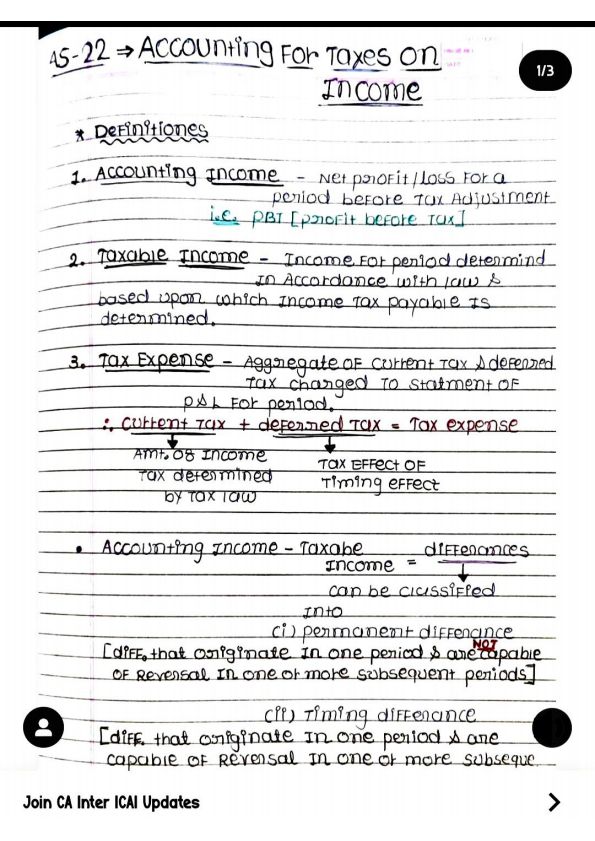 AS-22 ⇒ Accounting For Taxes on
Income
1/3
* Definitiones
1. Accounting Income - Net profit/loss for a
period before tax Adjustment
i.e. PBT [profit before tax]
2. Taxable Income - Income for period determind
in Accordance with law &
based upon which income tax payable is
determined.
3. Tax Expense - Aggregate of current tax & deferred
tax charged to statment of
P&L for period.
∴ Current tax + deferred tax = Tax expense
Amt. of Income
tax determined
by tax law
Tax effect of
timing effect
• Accounting Income - Taxabe differances
Income =
can be classified
into
(i) permanent differance
[diff. that originate in one period & are NOT capable
of reversal in one or more subsequent periods]
(ii) Timing differance
[diff. that originate in one period & are
capable of reversal in one or more subseque
Join CA Inter ICAI Updates